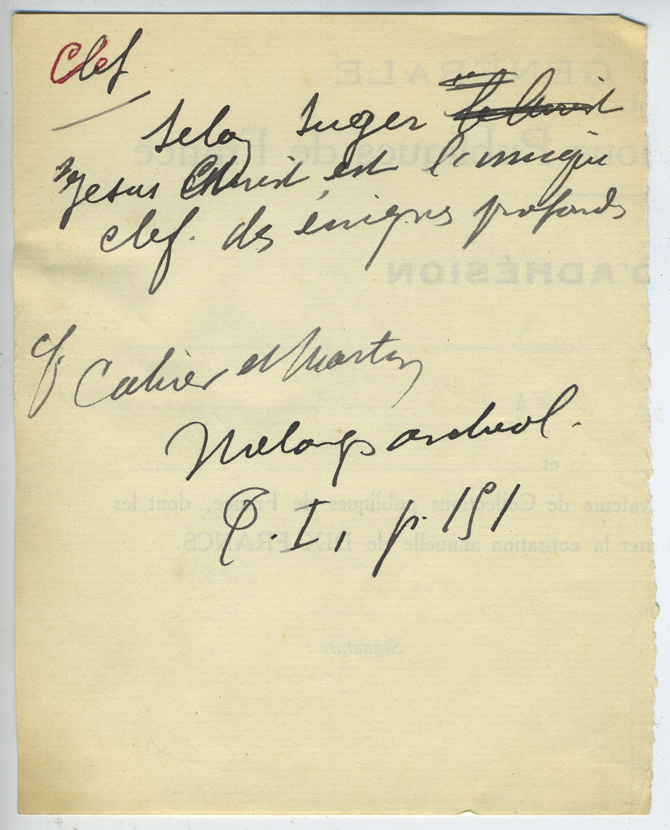 Clef
Selon Suger le Christ
Jesus Christ est l'unique
clef. des énigmes profonds
cf Cahier et Martin
Melanges archeol.
T. I, p. 151
GÉNÉRALE
Publiques de France
D'ADHÉSION
A
et
vateurs de Collections publiques de France, dont les
mer la cotisation annuelle de DIX FRANCS.
Signature :